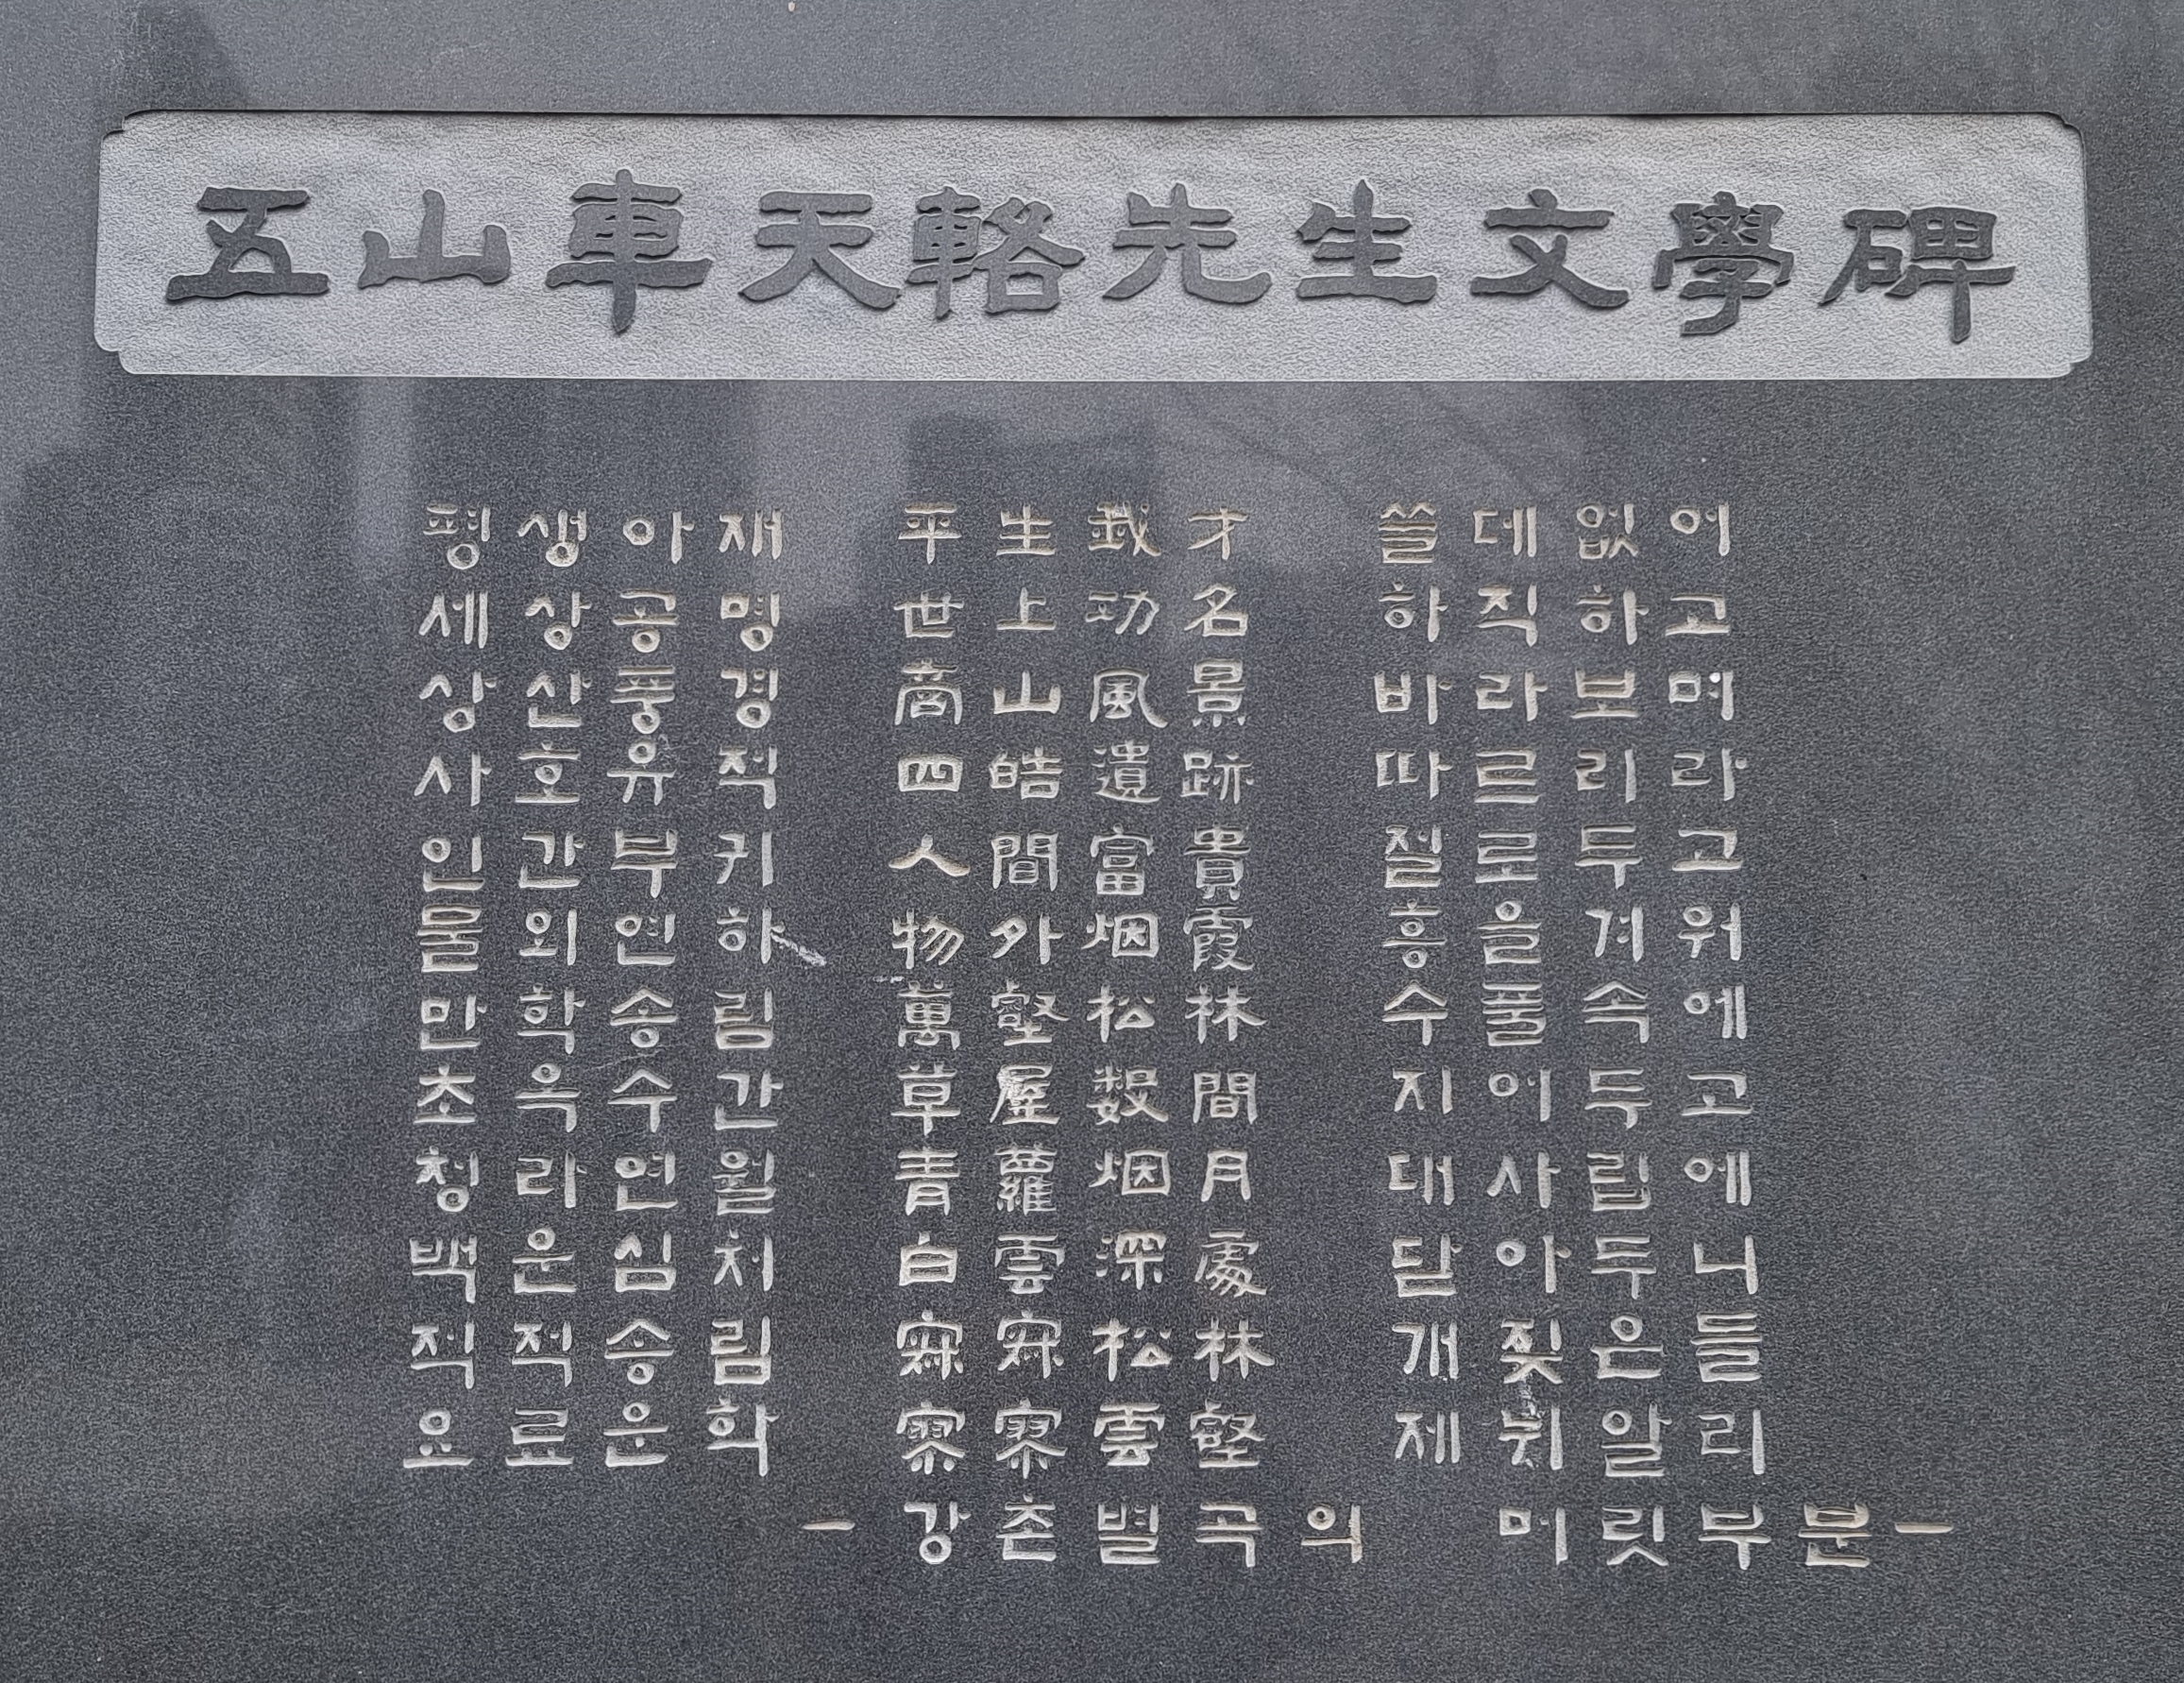 五山車天輅先生文學碑
평생아재 平生我才 쓸데없어
세상공명 世上功名 하직하고
상산풍경 商山風景 바라보며
사호유적 四皓遺跡 따르리라
인간부귀 人間富貴 절로두고
물외연하 物外烟霞 흥을겨워
만학송림 萬壑松林 수풀속에
초옥수간 草屋數間 지어두고
청라연월 青蘿烟月 대사립에
백운심처 白雲深處 닫아두니
적적송림 寂寂松林 개짖은들
요료운학 寥寥雲壑 제뉘알리
- 강촌별곡의 머릿부분 -